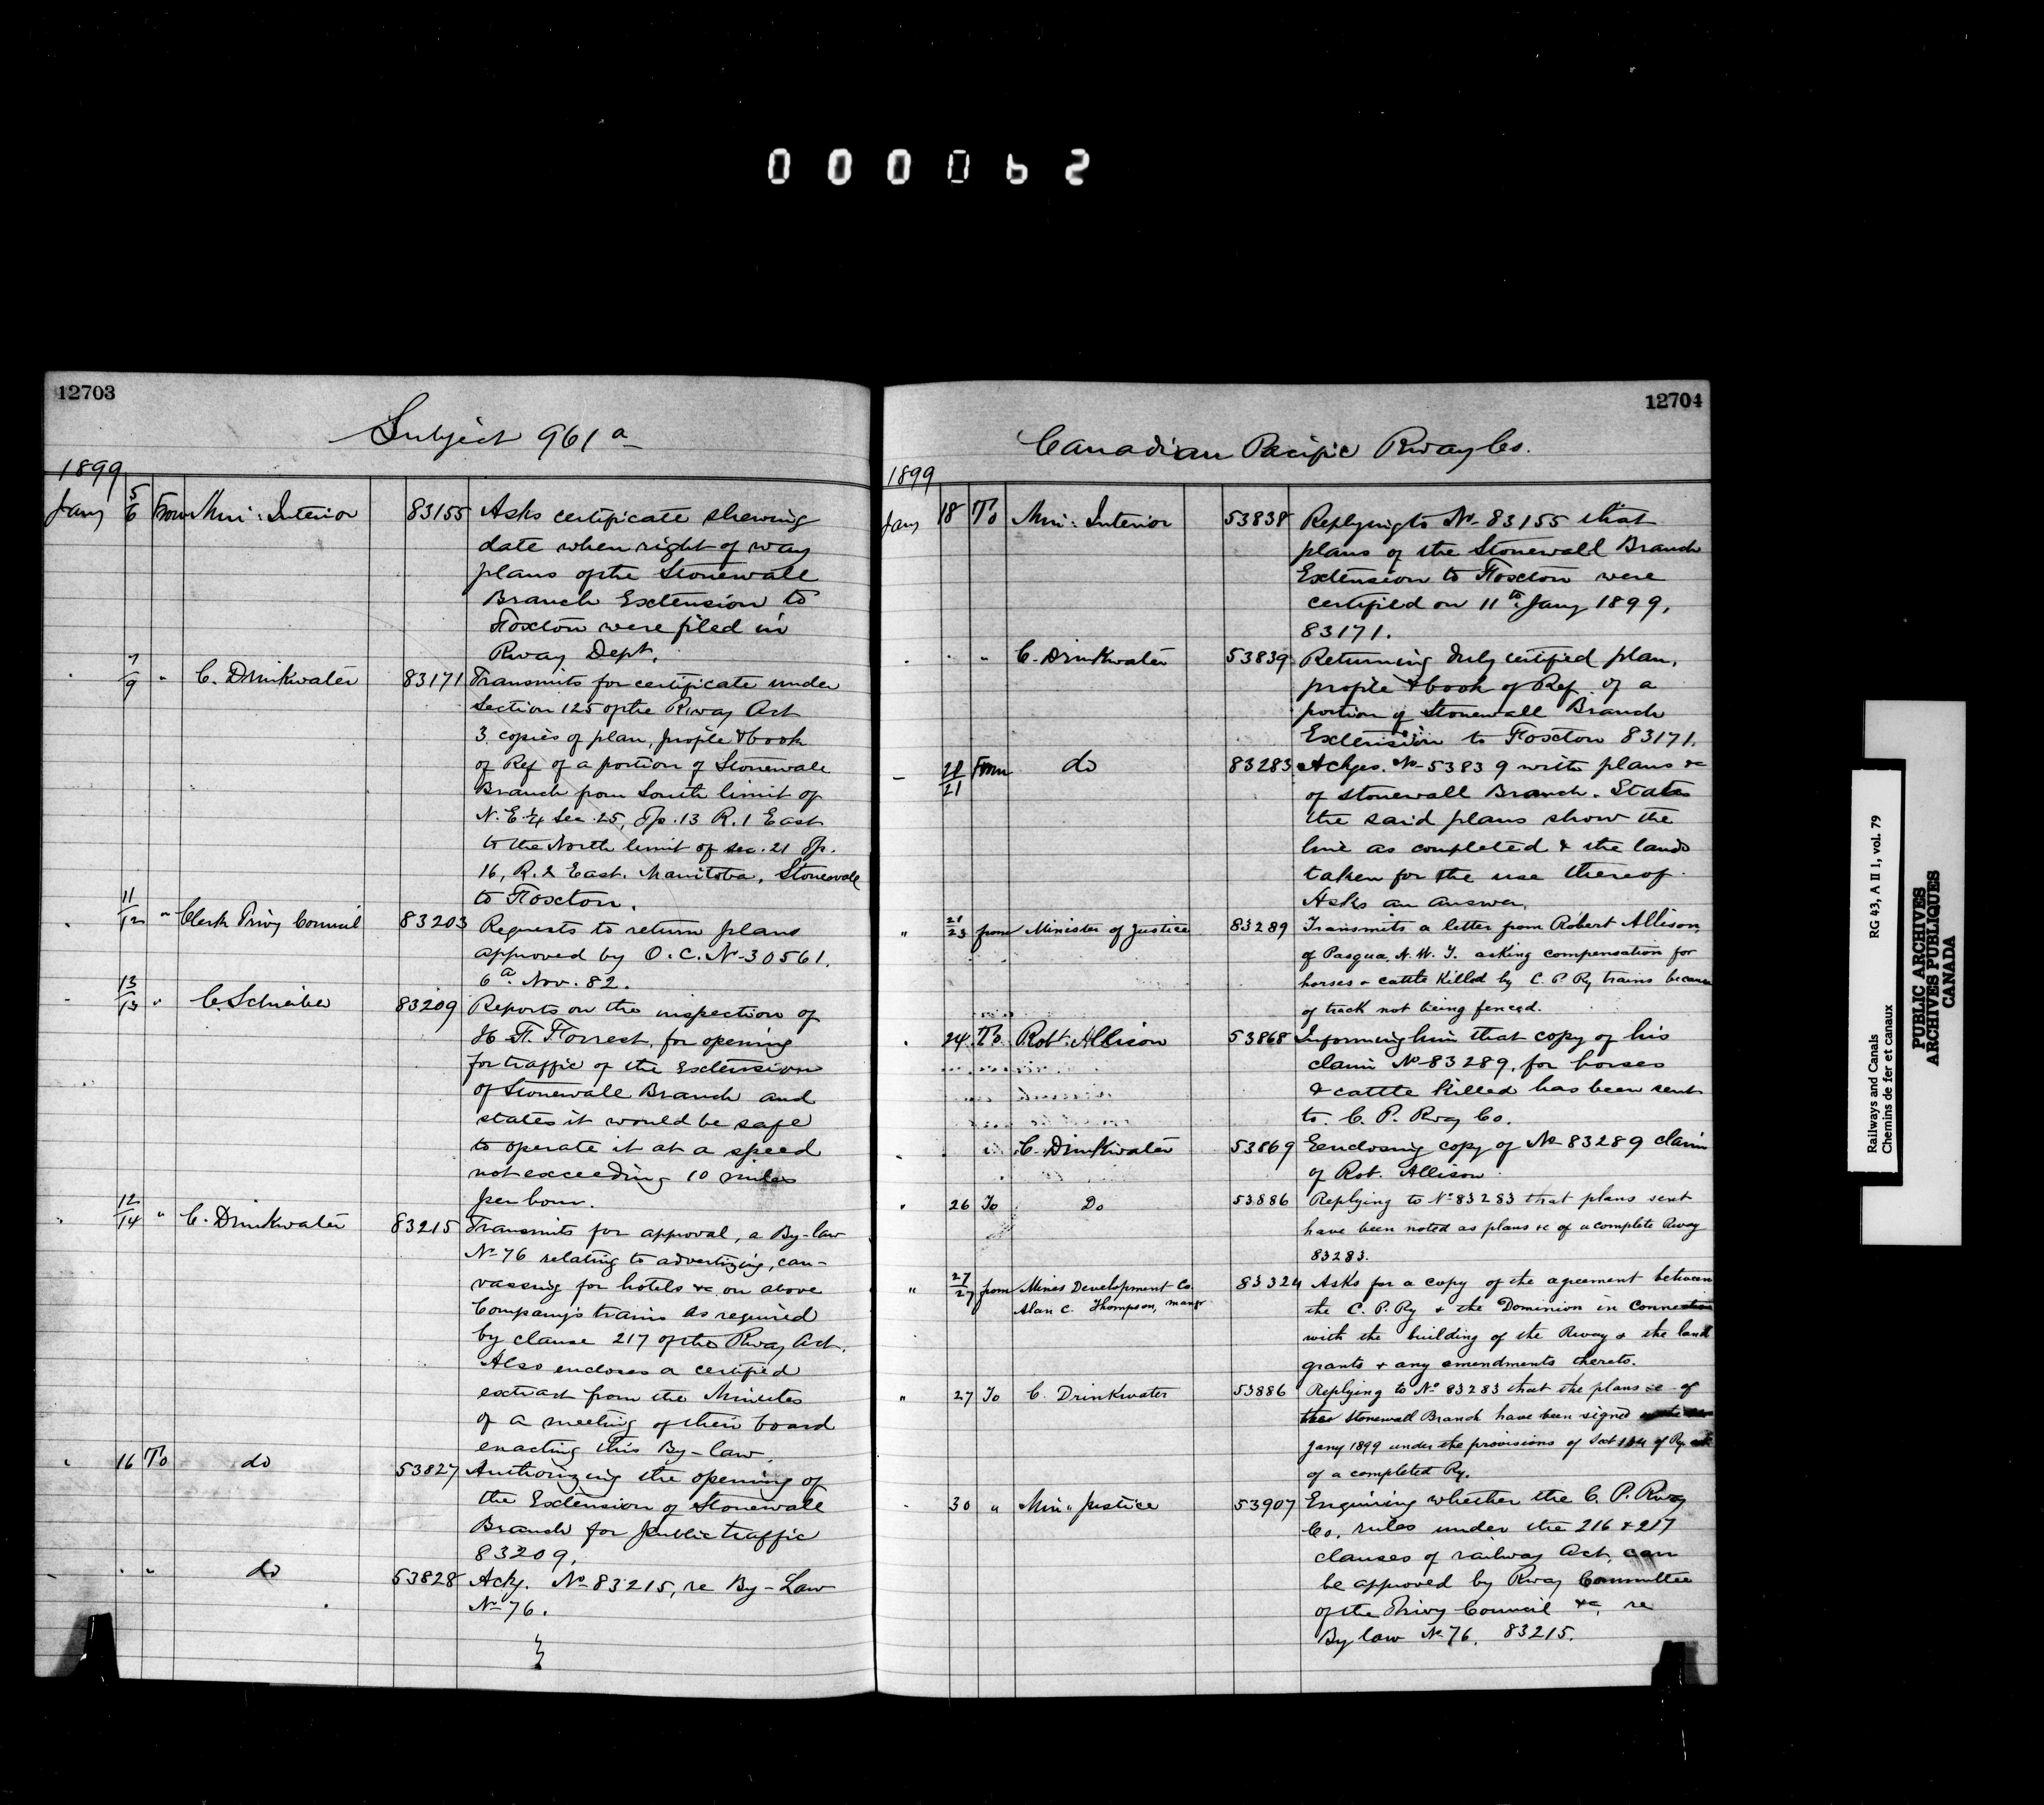 000062
12703
Subject 961a
1899
Jany 5/6 From Min: Interior 83155 Asks certificate shewing
date when right of way
plans of the Stonewall
Branch Extension to
Foxton were filed in
Rway Dept.
" 7/9 " C. Drinkwater 83171 Transmits for certificate under
Section 125 of the Rway Act
3 copies of plan, profile & book
of Ref of a portion of Stonewall
Branch from South limit of
N.E. 1/4 Sec. 25, Tp. 13 R. 1 East
to the North limit of sec. 21 Tp.
16, R. 2 East. Manitoba, Stonewall
to Foxton.
" 11/12 " Clerk Privy Council 83203 Requests to return plans
approved by O.C. No 30561.
6th Nov. 82.
" 13/13 " C. Schreiber 83209 Reports on the inspection of
H. F. Forrest, for opening
for traffic of the Extension
of Stonewall Branch and
states it would be safe
to operate it at a speed
not exceeding 10 miles
per hour.
" 12/14 " C. Drinkwater 83215 Transmits for approval, a By-law
No 76 relating to advertizing, can-
vassing for hotels &c on above
Company's trains as required
by clause 217 of the Rway Act.
Also encloses a certified
extract from the Minutes
of a meeting of their board
enacting this By-law.
" 16 To do 53827 Authorizing the opening of
the Extension of Stonewall
Branch for public traffic
83209.
" " " do 53828 Ackg. No 83215, re By-Law
No 76.
12704
Canadian Pacific Rway Co.
1899
Jany 18 To Min: Interior 53838 Replying to No 83155 that
plans of the Stonewall Branch
Extension to Foxton were
certified on 11th Jany 1899,
83171.
" " " C. Drinkwater 53839 Returning duly certified plan,
profile & book of Ref. of a
portion of Stonewall Branch
Extension to Foxton 83171.
" 21 From do 83283 Ackges. No 53839 with plans &c
of Stonewall Branch. States
the said plans show the
line as completed & the lands
taken for the use thereof.
Asks an answer.
" 23 from Minister of Justice 83289 Transmits a letter from Robert Allison
of Pasqua, N.W.T. asking compensation for
horses & cattle killed by C.P. Ry trains because
of track not being fenced.
" 24 To Robt. Allison 53868 Informing him that copy of his
claim No 83289, for horses
& cattle killed has been sent
to C. P. Rway Co.
" " C. Drinkwater 53869 Eenclosing copy of No 83289 claim
of Rob. Allison
" 26 To Do 53886 Replying to No 83283 that plans sent
have been noted as plans &c of a complete Rway
83283.
" 27/27 from Mines Development Co. 83324 Asks for a copy of the agreement between
Alan C. Thompson, mangr the C. P. Ry & the Dominion in connection
with the building of the Rway & the land
grants & any amendments thereto.
" 27 To C. Drinkwater 53886 Replying to No 83283 that the plans &c of
Stonewall Branch have been signed
Jany 1899 under the provisions of Sect 134 of Ry act
of a completed Ry.
" 30 " Min " Justice 53907 Enquiring whether the C. P. Rway
Co. rules under the 216 & 217
clauses of railway Act, can
be approved by Rway Committee
of the Privy Council &c, re
By law No 76. 83215.
Railways and Canals RG 43, A II 1, vol. 79
Chemins de fer et canaux
PUBLIC ARCHIVES
ARCHIVES PUBLIQUES
CANADA